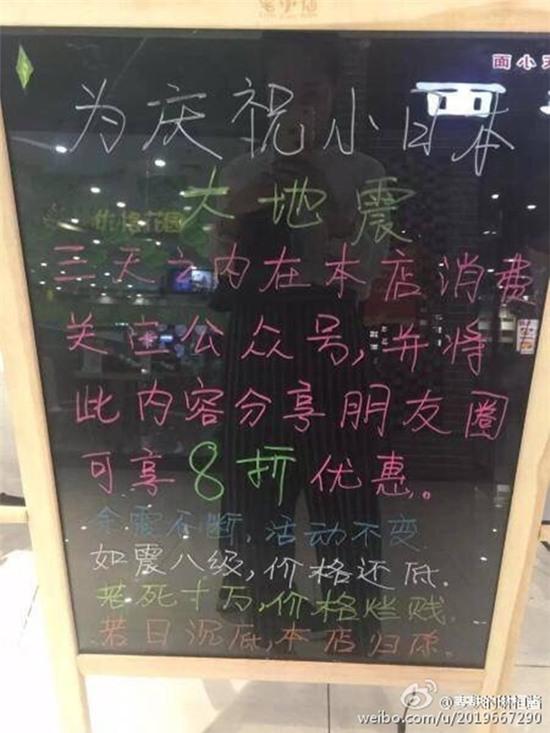 面小天
为庆祝小日本
大地震
三天之内在本店消费
关注公众号,并将
此内容分享朋友圈
可享8折优惠。
余震不断,活动不变
如震八级,价格还底.
若死十万,价格烂贱.
若日沉底,本店归你.
weibo.com/u/2019667290